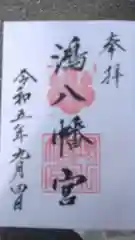 奉拝
鴻八幡宮
令和五年九月四日